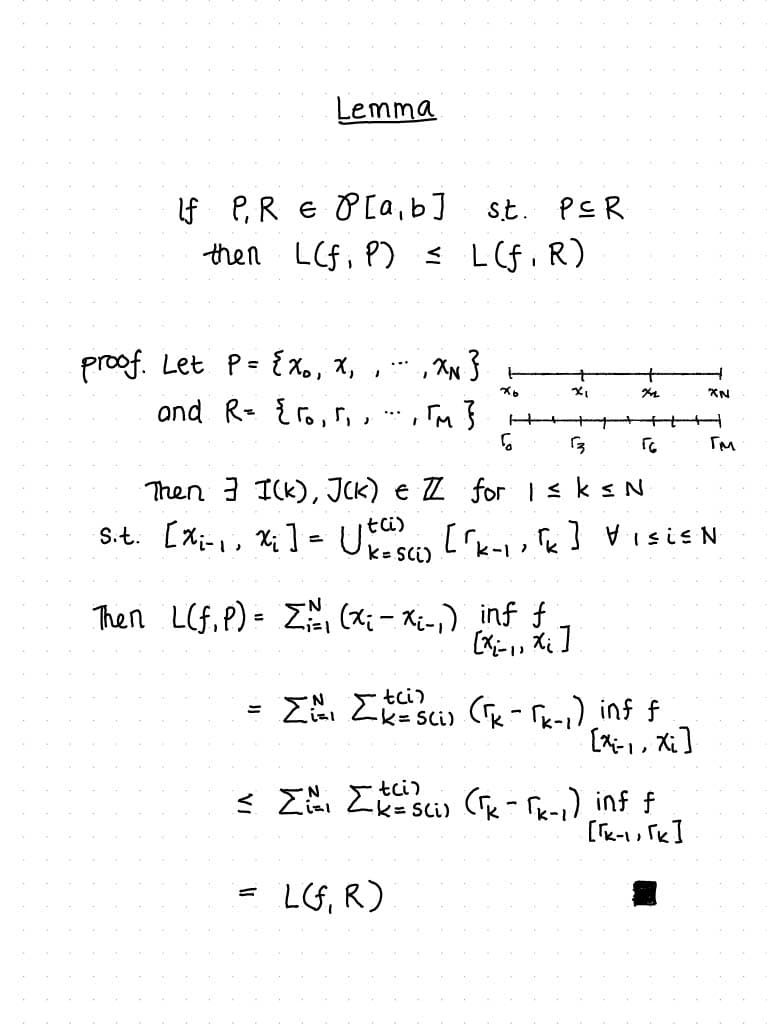 Lemma
If P, R ∈ 𝒫[a,b] s.t. P ⊆ R
then L(f, P) ≤ L(f, R)
proof. Let P = {x₀, x₁, ⋯, x_N}
x₀ x₁ x₂ x_N
and R = {r₀, r₁, ⋯, r_M}
r₀ r₃ r₆ r_M
Then ∃ I(k), J(k) ∈ ℤ for 1 ≤ k ≤ N
s.t. [x_{i-1}, x_i] = ⋃_{k=s(i)}^{t(i)} [r_{k-1}, r_k] ∀ 1 ≤ i ≤ N
Then L(f, P) = ∑_{i=1}^{N} (x_i − x_{i-1}) inf f
[x_{i-1}, x_i]
= ∑_{i=1}^{N} ∑_{k=s(i)}^{t(i)} (r_k − r_{k-1}) inf f
[x_{i-1}, x_i]
≤ ∑_{i=1}^{N} ∑_{k=s(i)}^{t(i)} (r_k − r_{k-1}) inf f
[r_{k-1}, r_k]
= L(f, R) ■